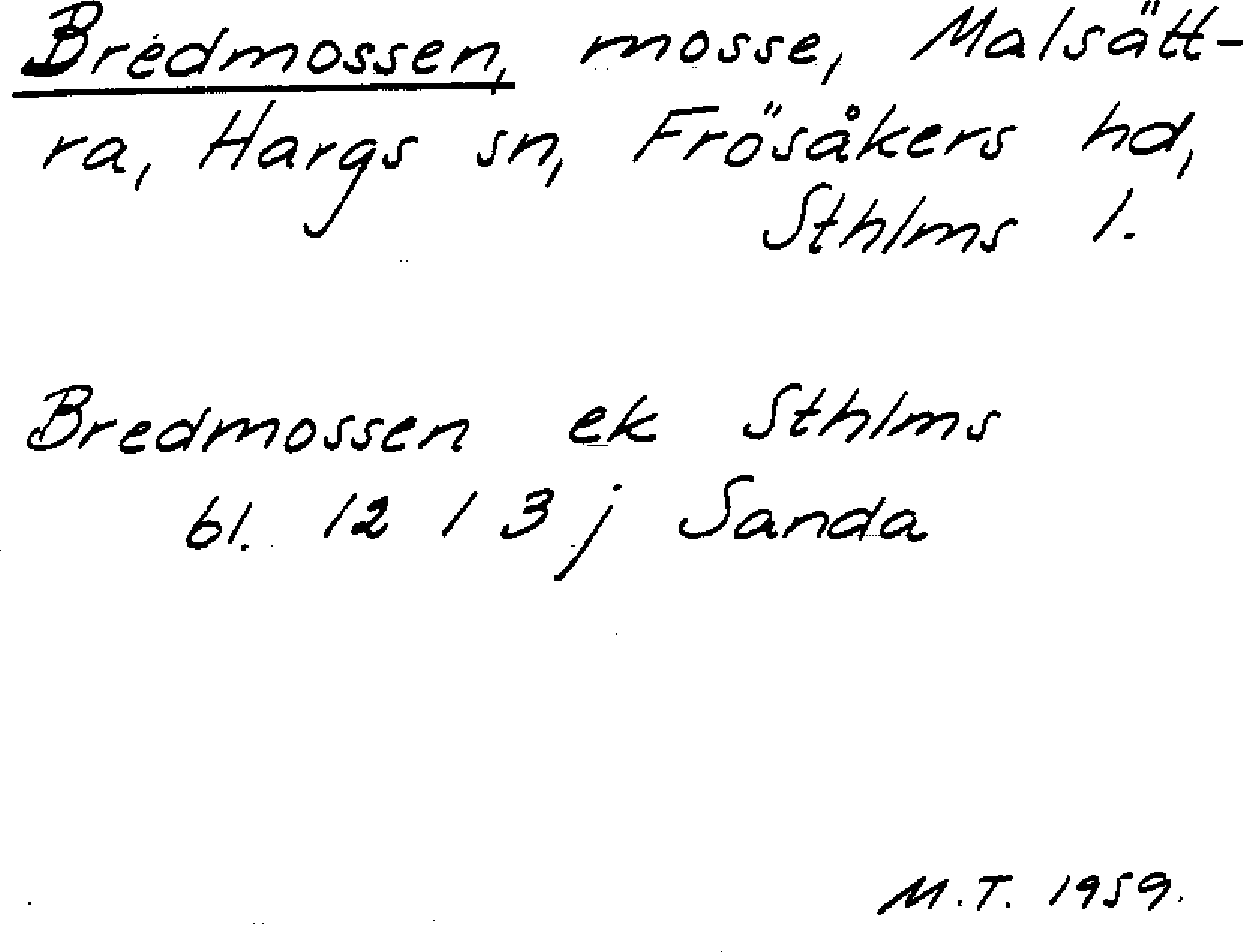 Bredmossen, mosse, Malsätt-
ra, Hargs sn, Frösåkers hd,
Sthlms l.
Bredmossen ek Sthlms
bl. 12 I 3 j Sanda
M.T. 1959.